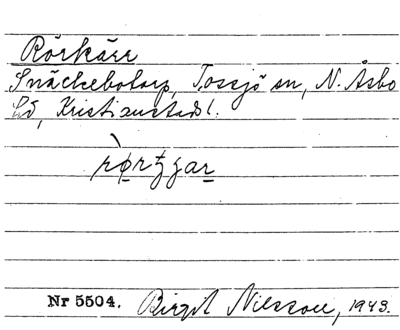 Rörkärr
Snäckebotorp, Tossjö sn, N. Åsbo
hd, Kristianstads l.
Nr 5504. Birgit Nilsson, 1943.